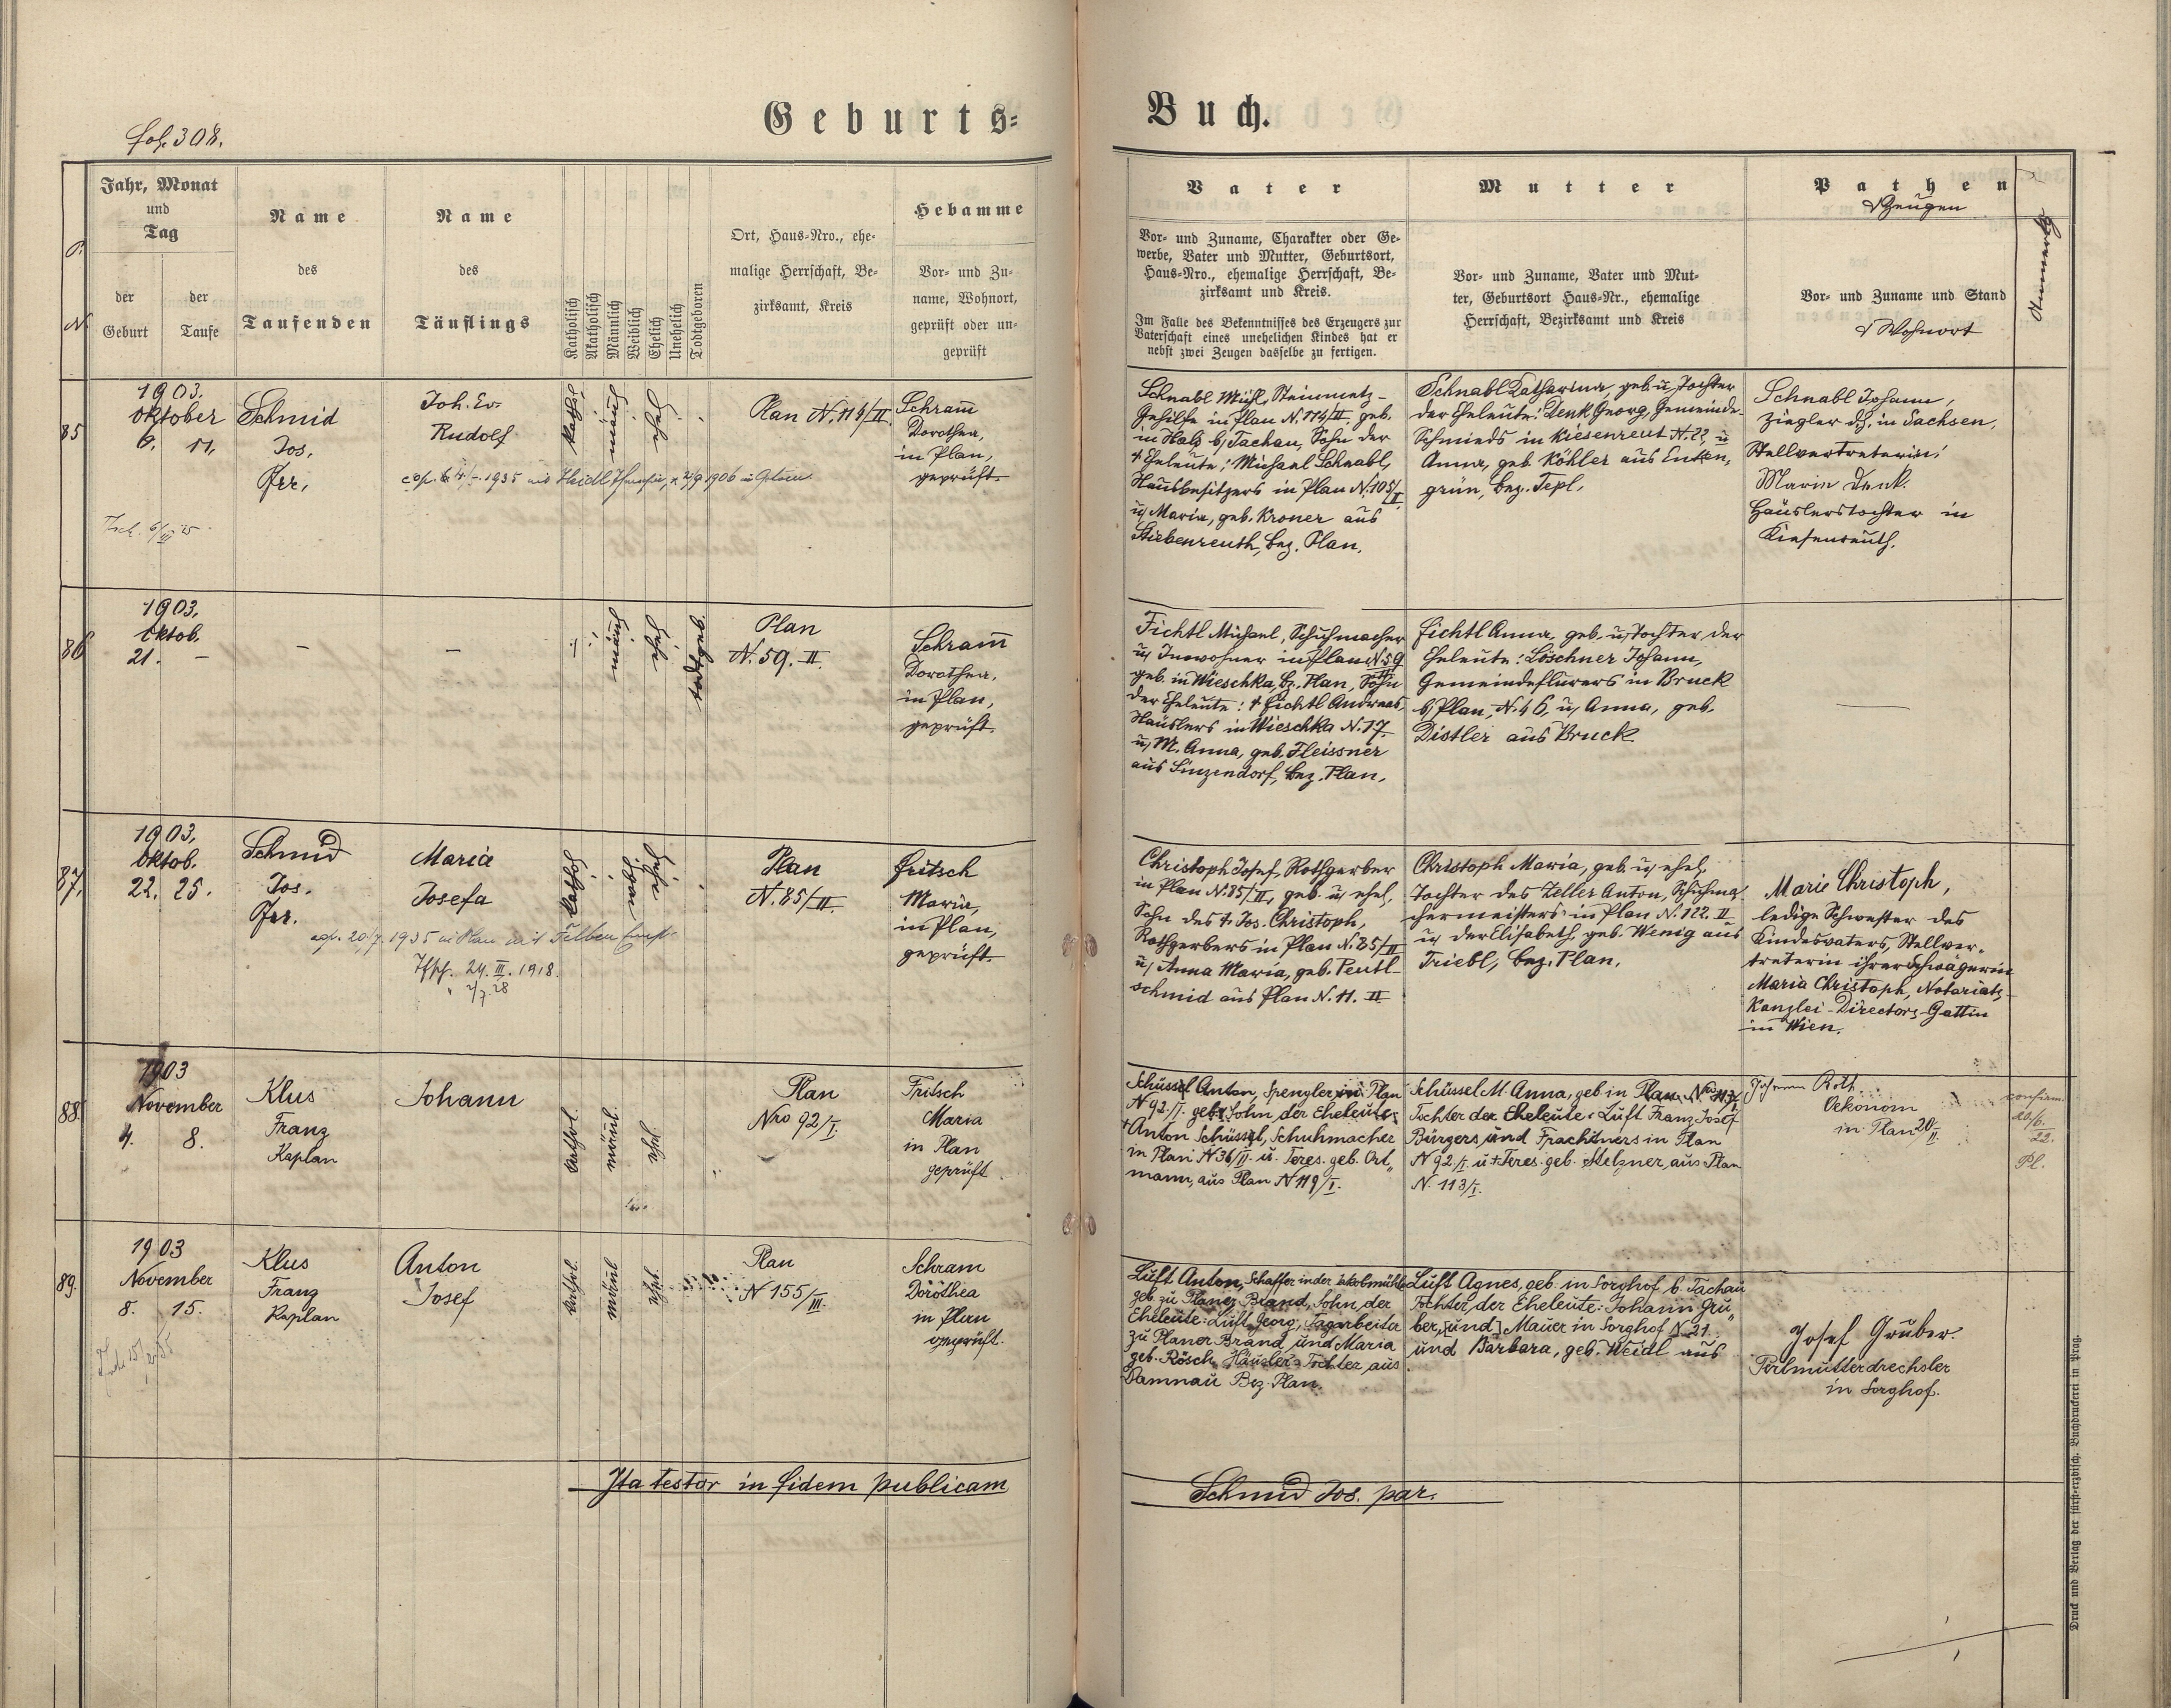 Geburts-
Buch.
fol. 308.
P. N.
Jahr, Monat
und
Tag
der
Geburt
der
Taufe
Name
des
Taufenden
Name
des
Täuflings
Katholisch
Akatholisch
Männlich
Weiblich
Ehelich
Unehelich
Todtgeboren
Ort, Haus-Nro., ehe-
malige Herrschaft, Be-
zirksamt, Kreis
Hebamme
Vor- und Zu-
name, Wohnort,
geprüft oder un-
geprüft
Vater
Vor- und Zuname, Charakter oder Ge-
werbe, Vater und Mutter, Geburtsort,
Haus-Nro., ehemalige Herrschaft, Be-
zirksamt und Kreis.
Im Falle des Bekenntnisses des Erzeugers zur
Vaterschaft eines unehelichen Kindes hat er
nebst zwei Zeugen dasselbe zu fertigen.
Mutter
Vor- und Zuname, Vater und Mut-
ter, Geburtsort Haus-Nr., ehemalige
Herrschaft, Bezirksamt und Kreis
Pathen
& Zeugen
Vor- und Zuname und Stand
& Wohnort
Anmerkg
85
1903.
Oktober
6. 11.
Schmid
Jos.
Pfr.
Joh. Ev.
Rudolf
kathol.
männl.
ehel.
Plan N. 114/II.
Schram̅
Dorothea,
in Plan,
geprüft.
1935 mit Heidl
1906 in
Schnabl Mich., Steinmetz-
Gehilfe in Plan N. 114/II. geb.
in Hals b/Tachau, Sohn der
† Eheleute: Michael Schnabl,
Hausbesitzers in Plan N. 105/II
u/ Maria, geb. Kroner aus
Stiebenreuth, bez. Plan.
Schnabl Katharina, geb. u/ Tochter
der Eheleute: Denk Georg, Gemeinde-
Schmieds in Kiesenreut N. 22, u
Anna, geb. Köhler aus Enken,
grün, bez. Tepl.
Schnabl Johann,
Ziegler dz. in Sachsen,
Stellvertreterin:
Maria Denk.
Häuslerstochter in
Kiesenreuth.
86
1903.
Oktob.
21. –
–
–
männl
ehel.
todtgeb.
Plan
N. 59. II.
Schram̅
Dorothea,
in Plan,
geprüft.
Fichtl Michael, Schuhmacher
u/ Inwohner in Plan N. 59
geb. in Wieschka, bz. Plan, Sohn
der Eheleute: † Fichtl Andreas,
Häuslers in Wieschka N. 17.
u/ M. Anna, geb. Fleissner
aus Sinzendorf, bez. Plan.
Fichtl Anna, geb. u/ Tochter der
Eheleute: Löschner Johann,
Gemeindeflurers in Bruck
b/Plan, N. 46, u/ Anna, geb.
Distler aus Bruck.
87.
1903,
Oktob.
22. 25.
Schmid
Jos.
Pfr.
Maria
Josefa
1935 in Plan mit Felber
Tfsch. 24. III. 1918.
" 2/7. 28
kathol.
weibl.
ehel.
Plan
N. 85/II.
Fritsch
Maria,
in Plan,
geprüft.
Christoph Josef, Rothgerber
in Plan N. 85/II, geb. u/ ehel.
Sohn des †. Jos. Christoph,
Rothgerbers in Plan N. 85/II
u/ Anna Maria, geb. Peutl-
schmid aus Plan N. 11. II
Christoph Maria, geb. u/ ehel.
Tochter des Zeller Anton, Schuhma-
chermeisters in Plan N. 122. II
u/ der Elisabeth, geb. Wenig aus
Triebl, bez. Plan.
Marie Christoph,
ledige Schwester des
Kindesvaters, Stellver-
treterin ihrer Schwägerin
Maria Christoph, Notariats-
Kanzlei-Directors-Gattin
in Wien.
88.
1903
November
4. 8.
Klus
Franz
Kaplan
Johann
kathol.
männl.
ehel.
Plan
Nro 92/I.
Fritsch
Maria
in Plan
geprüft.
Schüssel Anton, Spengler in Plan
N 92./I. geb. Sohn, der Eheleute
† Anton Schüssel, Schuhmacher
in Plan N 36/II. u. Teres. geb. Ort„
mann, aus Plan N 119/I.
Schüssel M. Anna, geb in Plan Nro 113/I.
Tochter der Eheleute: Luft Franz Josef
Bürgers und Frachtners in Plan
N 92./I. u. † Teres. geb. Stelzner, aus Plan
N. 113/I.
Johann Roth
Oekonom
in Plan 20/II.
confirm.
20/6.
22.
Pl.
89.
1903
November
8. 15.
Klus
Franz
Kaplan
Anton
Josef
kathol.
männl
ehel.
Plan
N 155/III.
Schram
Dorothea
in Plan
geprüft.
Luft Anton, Schaffer in der Jakobmühle
geb. zu Planer Brand, Sohn, der
Eheleute: Luft Georg, Tagarbeiter
zu Planer Brand und Maria
geb. Rösch, Häusler's Tochter, aus
Damnau Bez. Plan.
Luft Agnes, geb. in Sorghof b. Tachau
Tochter, der Eheleute: Johann Gru„
ber, [und] Mauer in Sorghof N. 21.
und Barbara, geb. Weidl aus
Josef Gruber.
Perlmutterdrechsler
in Sorghof.
Ita testor in fidem publicam
Schmid Jos. par.
Druck und Verlag der fürst-erzbisch. Buchdruckerei in Prag.